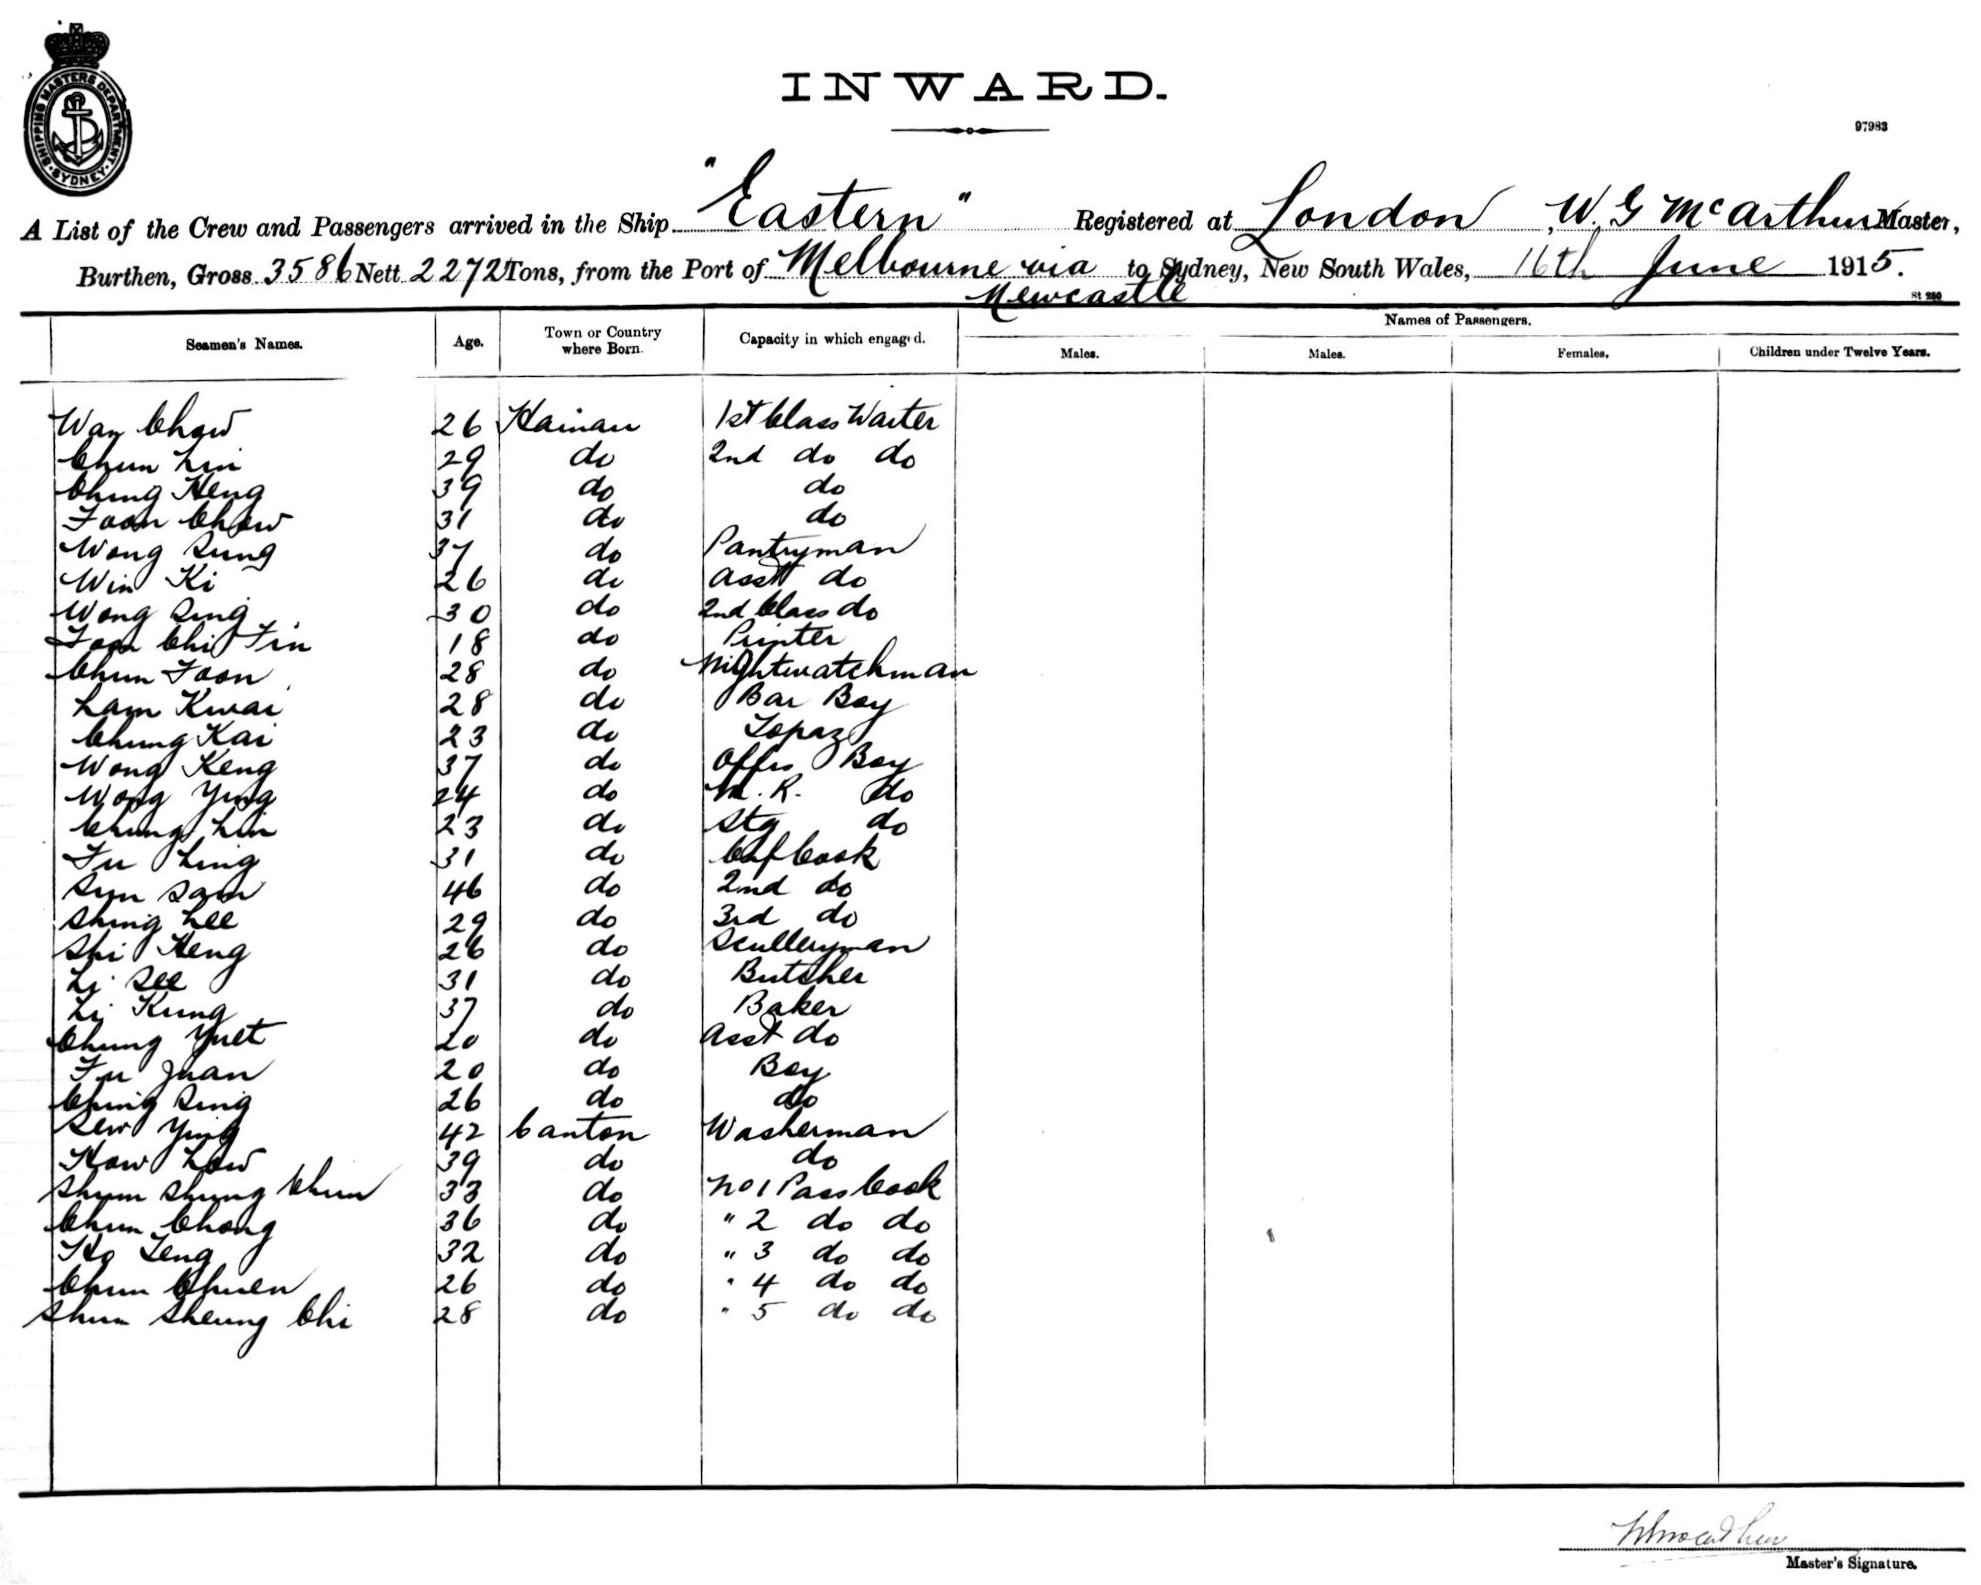 SHIPPING MASTERS DEPARTMENT
SYDNEY
INWARD.
97983
A List of the Crew and Passengers arrived in the Ship "Eastern" Registered at London, W. G McArthur Master,
Burthen, Gross 3586 Nett 2272 Tons, from the Port of Melbourne via Newcastle to Sydney, New South Wales, 16th June 1915.
St 250
Seamen's Names. Age. Town or Country where Born. Capacity in which engaged. Names of Passengers.
Males. Males. Females. Children under Twelve Years.
Wan Chow 26 Hainan 1st Class Waiter
Chun Lin 29 do 2nd do do
Ching Heng 39 do do
Foon Chow 31 do do
Wong Sung 37 do Pantryman
Win Ki 26 do Asst do
Wong Sing 30 do 2nd Class do
Foon Chi Fin 18 do Printer
Chun Foon 28 do Nightwatchman
Lam Kwai 28 do Bar Boy
Chung Kai 23 do Topaz
Wong Keng 37 do Offrs Boy
Wong Ying 24 do M. R. do
Chung Lin 23 do Stg do
Fu Ling 31 do Chf Cook
Sun Sam 46 do 2nd do
Shing Lee 29 do 3rd do
Shi Heng 26 do Sculleryman
Li See 31 do Butcher
Li Kung 37 do Baker
Chung Yuet 20 do Asst do
Fu Juan 20 do Boy
Ching Sing 26 do do
Sew Ying 42 Canton Washerman
How Low 39 do do
Shum Shung Chun 33 do No 1 Pass Cook
Chun Chong 36 do " 2 do do
Ho Leng 32 do " 3 do do
Chun Chuen 26 do " 4 do do
Shum Sheung Chi 28 do " 5 do do
Master's Signature.